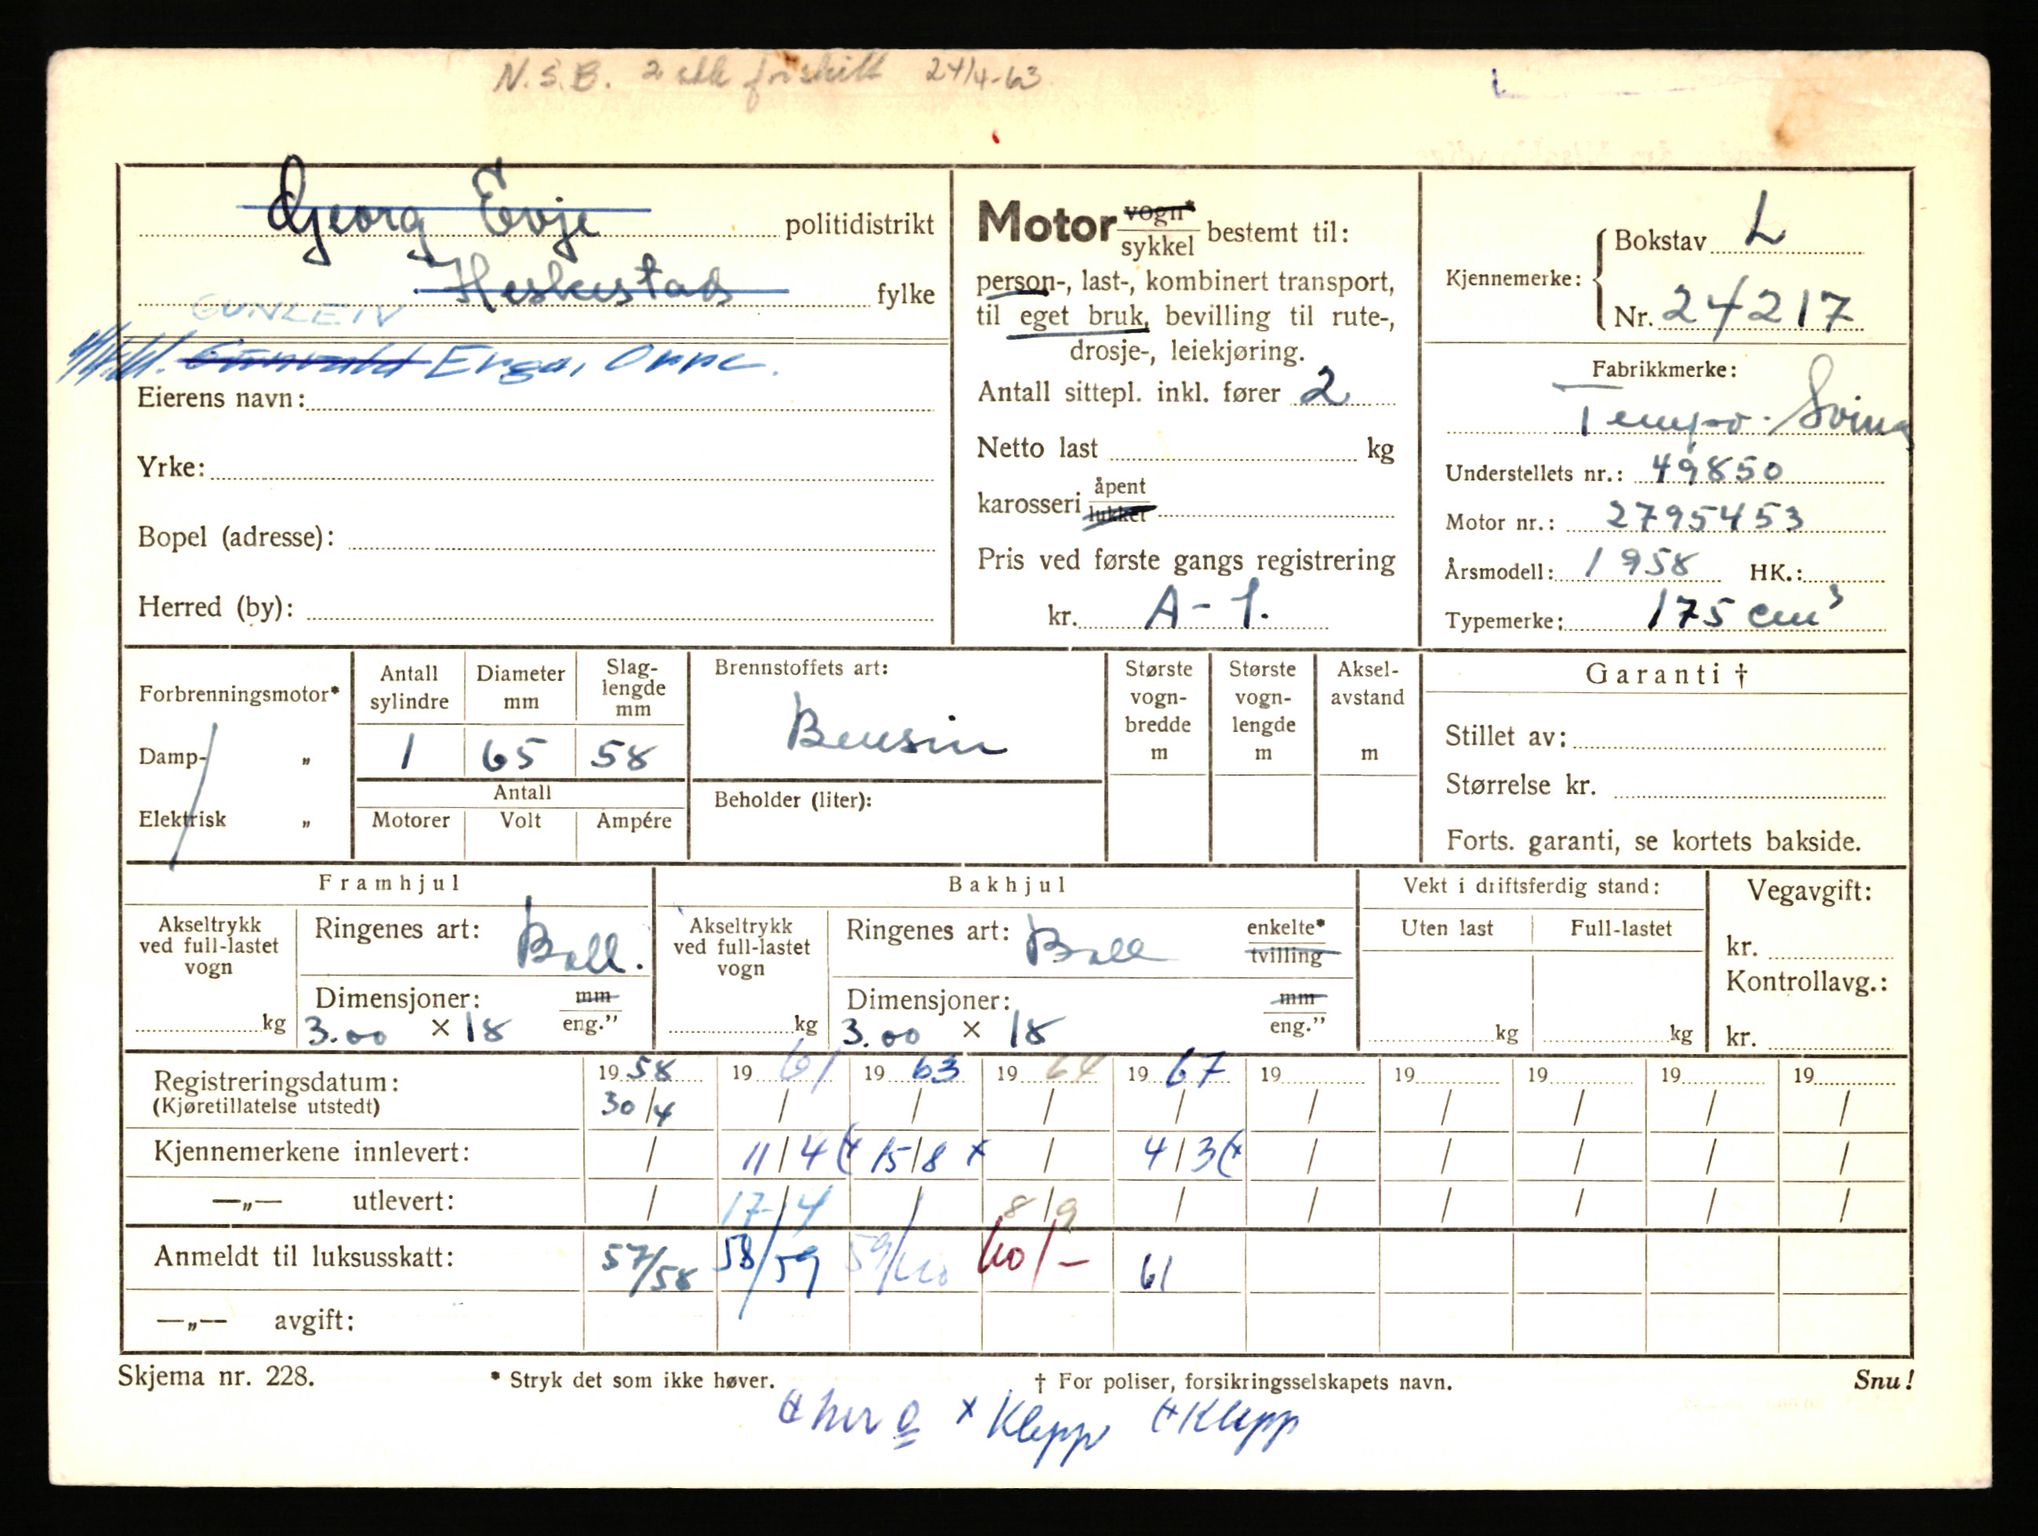 N.S.B. 2 stk forskilt 24/4-63
Georg Evje politidistrikt
Heskestad fylke
GUNLEIV
Gunvald Erga, Orre.
Eierens navn:
Yrke:
Bopel (adresse):
Herred (by):
Motor vogn* / sykkel bestemt til:
person-, last-, kombinert transport,
til eget bruk, bevilling til rute-,
drosje-, leiekjøring.
Antall sittepl. inkl. fører 2
Netto last kg
karosseri åpent / lukket
Pris ved første gangs registrering
kr. A-1.
Kjennemerke: Bokstav L
Nr. 24217
Fabrikkmerke:
Tempo Swing
Understellets nr.: 49850
Motor nr.: 2795453
Årsmodell: 1958 HK.:
Typemerke: 175 cm³
Forbrenningsmotor*
Damp- „
Elektrisk „
Antall sylindre Diameter mm Slag-lengde mm
1 65 58
Antall
Motorer Volt Ampére
Brennstoffets art:
Bensin
Beholder (liter):
Største vogn-bredde m
Største vogn-lengde m
Aksel-avstand m
Garanti †
Stillet av:
Størrelse kr.
Forts. garanti, se kortets bakside.
Framhjul
Akseltrykk ved full-lastet vogn
kg
Ringenes art: Ball.
Dimensjoner: mm / eng."
3.00 × 18
Bakhjul
Akseltrykk ved full-lastet vogn
kg
Ringenes art: Ball enkelte* / tvilling
Dimensjoner: mm / eng."
3.00 × 18
Vekt i driftsferdig stand:
Uten last Full-lastet
kg kg
Vegavgift:
kr.
Kontrollavg.:
kr.
Registreringsdatum: 1958 1961 1963 1964 1967 19 19 19 19 19
(Kjøretillatelse utstedt) 30/4 / / / / / / / / /
Kjennemerkene innlevert: / 11/4 (x 15/8 x / 4/3 (x / / / / /
—„— utlevert: / 17/4 / 8/9 / / / / / /
Anmeldt til luksusskatt: 57/58 58/59 59/60 60/- 61
—„— avgift:
Skjema nr. 228.
* Stryk det som ikke høver.
† For poliser, forsikringsselskapets navn.
Snu!
x Klepp (x Klepp